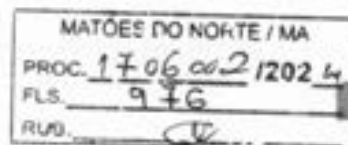 MATÕES DO NORTE / MA
PROC. 1706002/2024
FLS. 976
RUB.